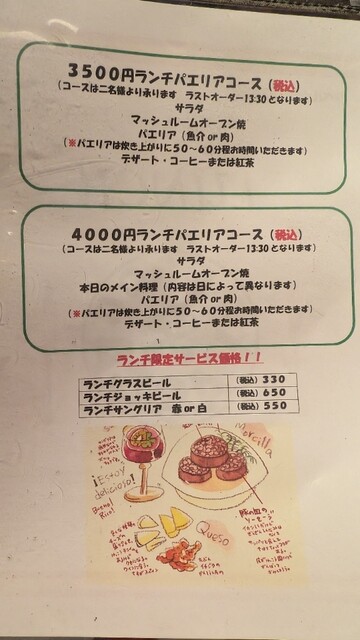 3500円ランチパエリアコース（税込）
（コースは二名様より承ります　ラストオーダー13:30となります）
サラダ
マッシュルームオーブン焼
パエリア（魚介 or 肉）
（※パエリアは炊き上がりに50～60分程お時間いただきます）
デザート・コーヒーまたは紅茶
4000円ランチパエリアコース（税込）
（コースは二名様より承ります　ラストオーダー13:30となります）
サラダ
マッシュルームオーブン焼
本日のメイン料理（内容は日によって異なります）
パエリア（魚介 or 肉）
（※パエリアは炊き上がりに50～60分程お時間いただきます）
デザート・コーヒーまたは紅茶
ランチ限定サービス価格！！
ランチグラスビール （税込）330
ランチジョッキビール （税込）650
ランチサングリア　赤 or 白 （税込）550
Morcilla
¡Estoy
delicioso!
Queso
豚の血の
ソーセージ